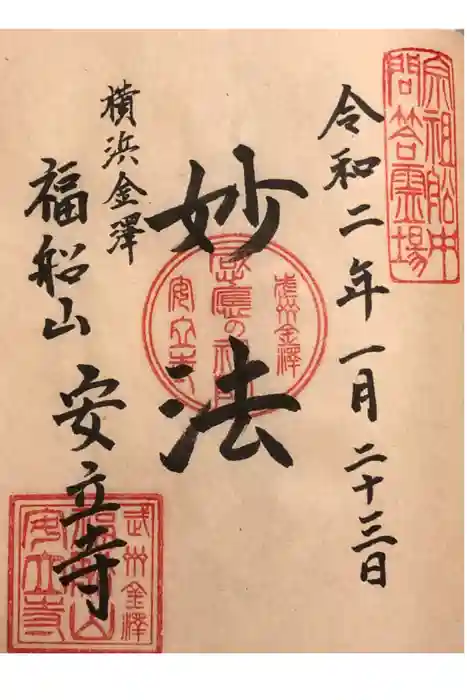 宗祖舩中
問答霊場
令和二年一月二十三日
妙法
武州金澤
安立寺
横浜金澤
福船山 安立寺
武州金澤
福船山
安立寺